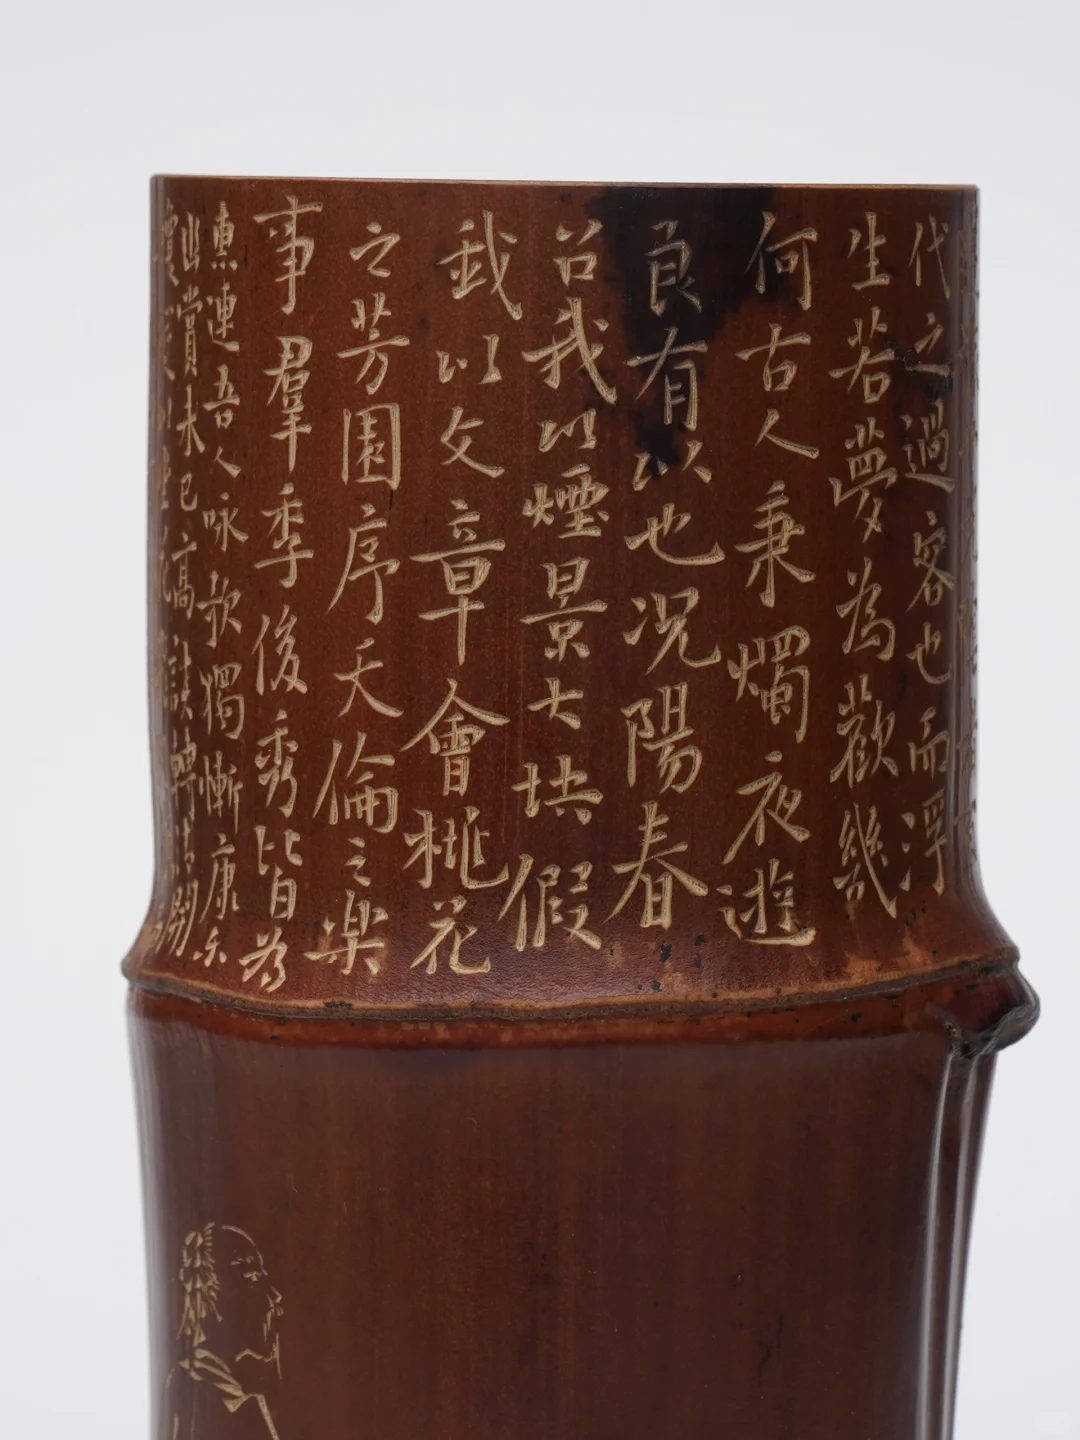 代之過客也而浮
生若夢為歡幾
何古人秉燭夜遊
良有以也況陽春
召我以煙景大块假
我以文章會桃花
之芳園序天倫之樂
事羣季俊秀皆為
惠連吾人咏歌獨慚康乐
幽賞未已高談轉清開